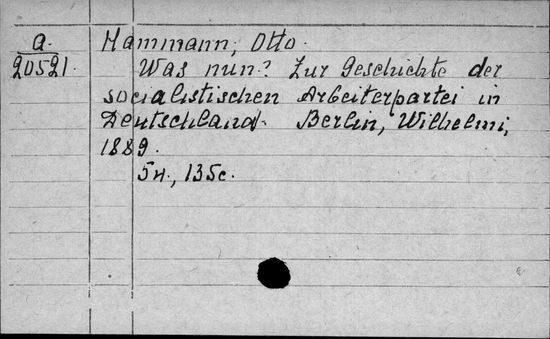 a.
20521.
Hammann, Otto.
Was nun? Zur Geschichte der
socialistischen Arbeiterpartei in
Deutschland. Berlin, Wilhelmi,
1889.
5н., 135с.